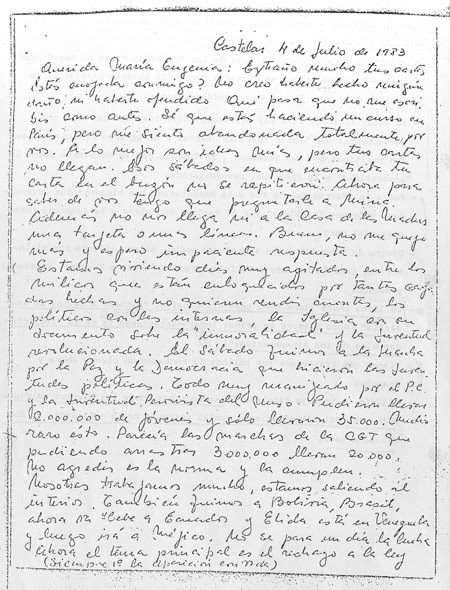 Castelar 4 de Julio de 1983
Querida María Eugenia: Extraño mucho tus cartas
¿Estás enojada conmigo? No creo haberte hecho ningún
daño, ni haberte ofendido Qué pasa que no me escri
bis como antes. Sé que estás haciendo un curso en
París, pero me siento abandonada totalmente por
vos. A lo mejor son ideas mías, pero tus cartas
no llegan. Esos sábados en que encontraba tu
carta en el buzón no se repitieron. Ahora para
saber de vos tengo que preguntarle a
Además no nos llega ni a la Casa de las Madres
una tarjeta o unas líneas. Bueno, no me quejo
más y espero impaciente respuesta.
Estamos viviendo días muy agitados, entre los
milicos que están enloquecidos por tantas
hechas y no quieren rendir cuentas, los
políticos con las internas la Iglesia con su
documento sobre la "inmoralidad" y la juventud
revolucionada. El Sábado fuimos a la Marcha
por la Paz y la Democracia que hicieron las Juven
tudes políticas. Todo muy manijeado por el P.C
y la Juventud Peronista del Pudieron llevar
2.000.000 de jóvenes y sólo llevaron 35.000. Medio
raro esto. Parecía las marchas de la CGT que
pudiendo arrastrar 3.000.000 llevan 20.000.
No agredir es la norma y la cumplen.
Nosotras trabajamos mucho, estamos saliendo al
interior. También fuimos a Bolivia, Brasil,
ahora va Hebe a Ecuador y Elida está en Venezuela
y luego irá a Méjico. No se para un día la lucha
Ahora el tema principal es el rechazo a la ley
(Diciembre 1º la aparición con vida)